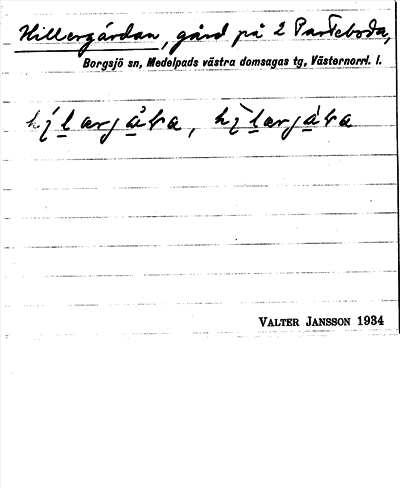 Hillergårdan, gård på 2 Parteboda,
Borgsjö sn, Medelpads västra domsagas tg, Västernorrl. l.
VALTER JANSSON 1934